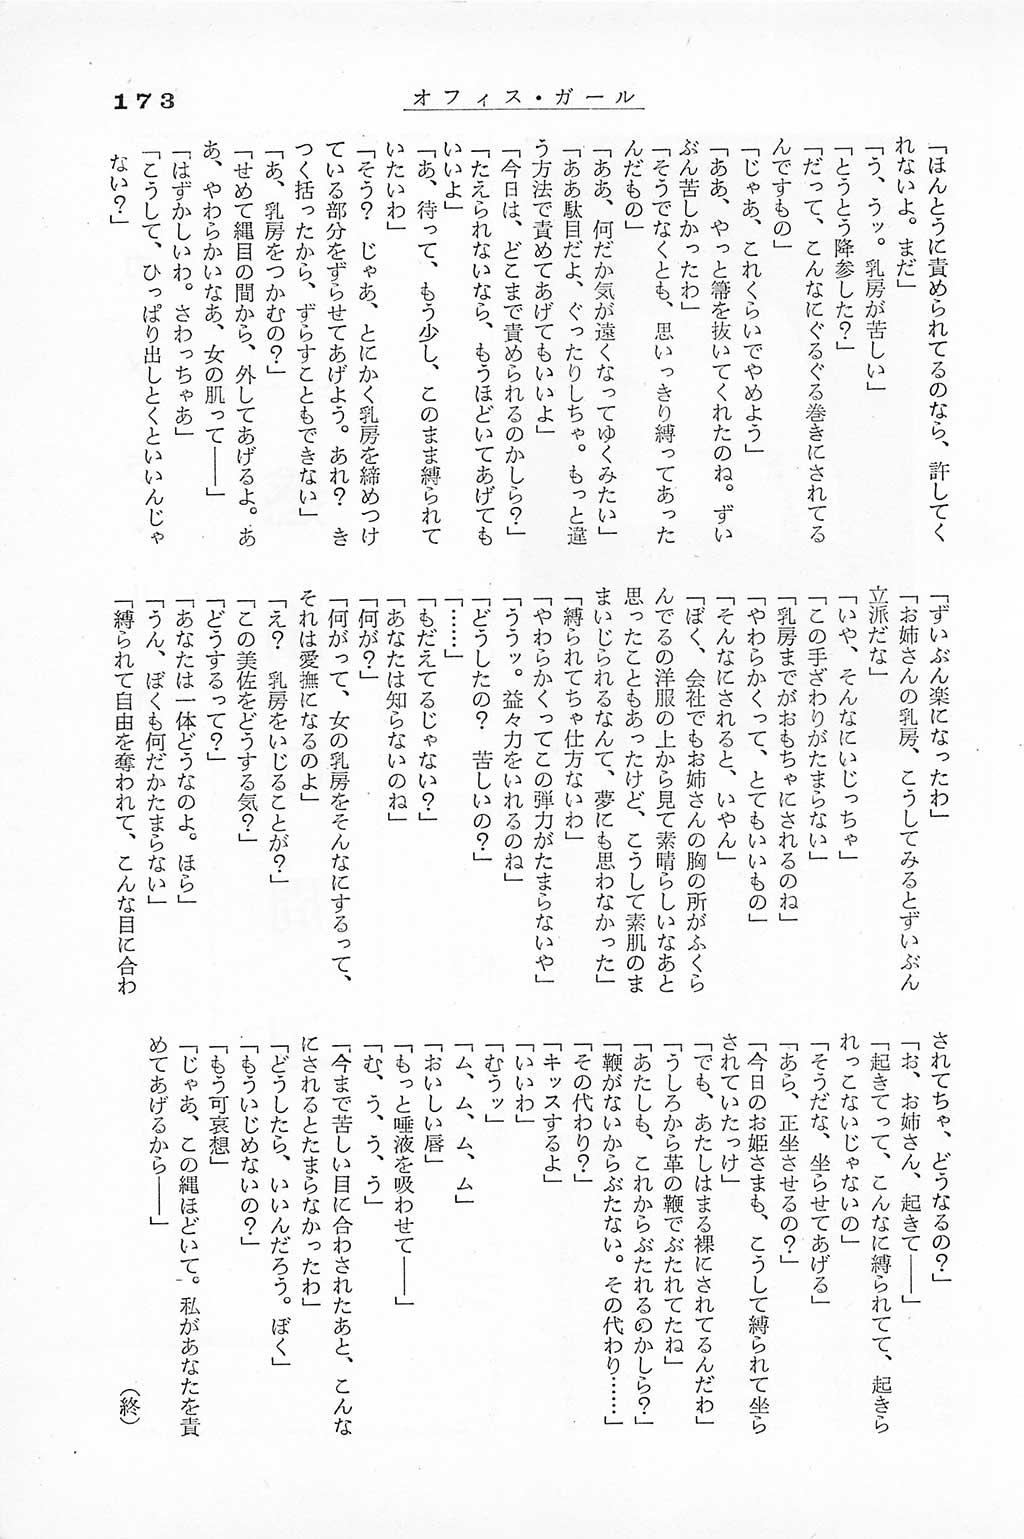 173
オフィス・ガール
「ほんとうに責められてるのなら、許してく
れないよ。まだ」
「う、うッ。乳房が苦しい」
「とうとう降参した？」
「だって、こんなにぐるぐる巻きにされてる
んですもの」
「じゃあ、これくらいでやめよう」
「ああ、やっと箒を抜いてくれたのね。ずい
ぶん苦しかったわ」
「そうでなくとも、思いっきり縛ってあった
んだもの」
「ああ、何だか気が遠くなってゆくみたい」
「ああ駄目だよ、ぐったりしちゃ。もっと違
う方法で責めてあげてもいいよ」
「今日は、どこまで責められるのかしら？」
「たえられないなら、もうほどいてあげても
いいよ」
「あ、待って、もう少し、このまま縛られて
いたいわ」
「そう？　じゃあ、とにかく乳房を締めつけ
ている部分をずらせてあげよう。あれ？　き
つく括ったから、ずらすこともできない」
「あ、乳房をつかむの？」
「せめて縄目の間から、外してあげるよ。あ
あ、やわらかいなあ、女の肌って――」
「はずかしいわ。さわっちゃあ」
「こうして、ひっぱり出しとくといいんじゃ
ない？」
「ずいぶん楽になったわ」
「お姉さんの乳房、こうしてみるとずいぶん
立派だな」
「いや、そんなにいじっちゃ」
「この手ざわりがたまらない」
「乳房までがおもちゃにされるのね」
「やわらかくって、とてもいいもの」
「そんなにされると、いやん」
「ぼく、会社でもお姉さんの胸の所がふくら
んでるの洋服の上から見て素晴らしいなあと
思ったこともあったけど、こうして素肌のま
まいじられるなんて、夢にも思わなかった」
「縛られてちゃ仕方ないわ」
「やわらかくってこの弾力がたまらないや」
「ううッ。益々力をいれるのね」
「どうしたの？　苦しいの？」
「……」
「もだえてるじゃない？」
「あなたは知らないのね」
「何が？」
「何がって、女の乳房をそんなにするって、
それは愛撫になるのよ」
「え？　乳房をいじることが？」
「この美佐をどうする気？」
「どうするって？」
「あなたは一体どうなのよ。ほら」
「うん、ぼくも何だかたまらない」
「縛られて自由を奪われて、こんな目に合わ
されてちゃ、どうなるの？」
「お、お姉さん、起きて――」
「起きてって、こんなに縛られてて、起きら
れっこないじゃないの」
「そうだな、坐らせてあげる」
「あら、正坐させるの？」
「今日のお姫さまも、こうして縛られて坐ら
されていたっけ」
「でも、あたしはまる裸にされてるんだわ」
「うしろから革の鞭でぶたれてたね」
「あたしも、これからぶたれるのかしら？」
「鞭がないからぶたない。その代わり……」
「その代わり？」
「キッスするよ」
「いいわ」
「むうッ」
「ム、ム、ム、ム」
「おいしい唇」
「もっと唾液を吸わせて――」
「む、う、う、う」
「今まで苦しい目に合わされたあと、こんな
にされるとたまらなかったわ」
「どうしたら、いいんだろう。ぼく」
「もういじめないの？」
「もう可哀想」
「じゃあ、この縄ほどいて。私があなたを責
めてあげるから――」
（終）